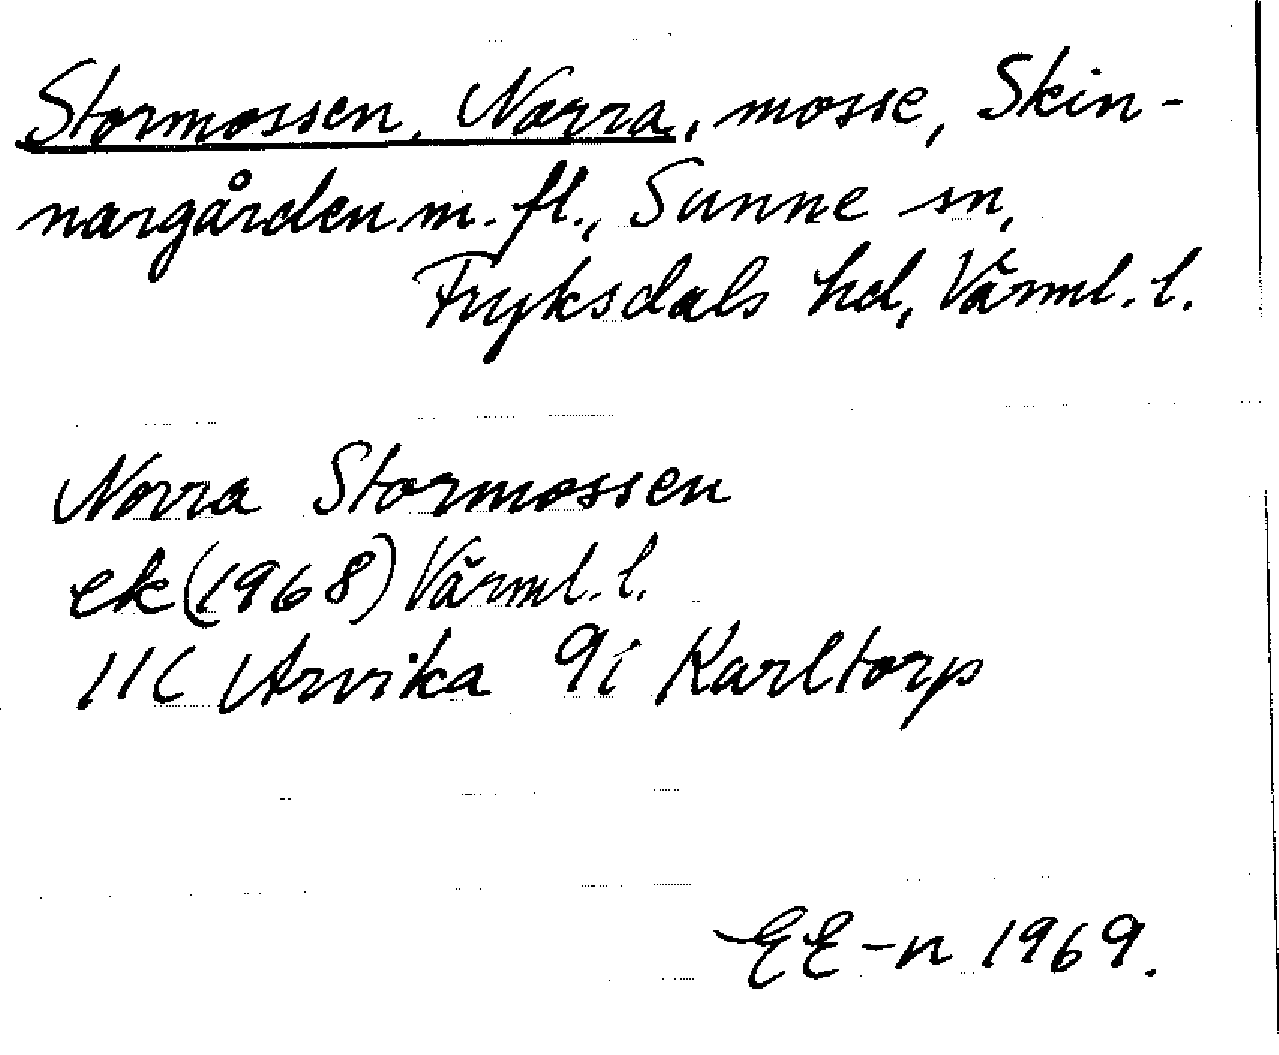 Stormossen, Norra, mosse, Skin-
nargården m. fl., Sunne sn,
Fryksdals hd, Värml. l.
Norra Stormossen
ek (1968) Värml. l.
11C Arvika 9i Karltorp
EE-n 1969.